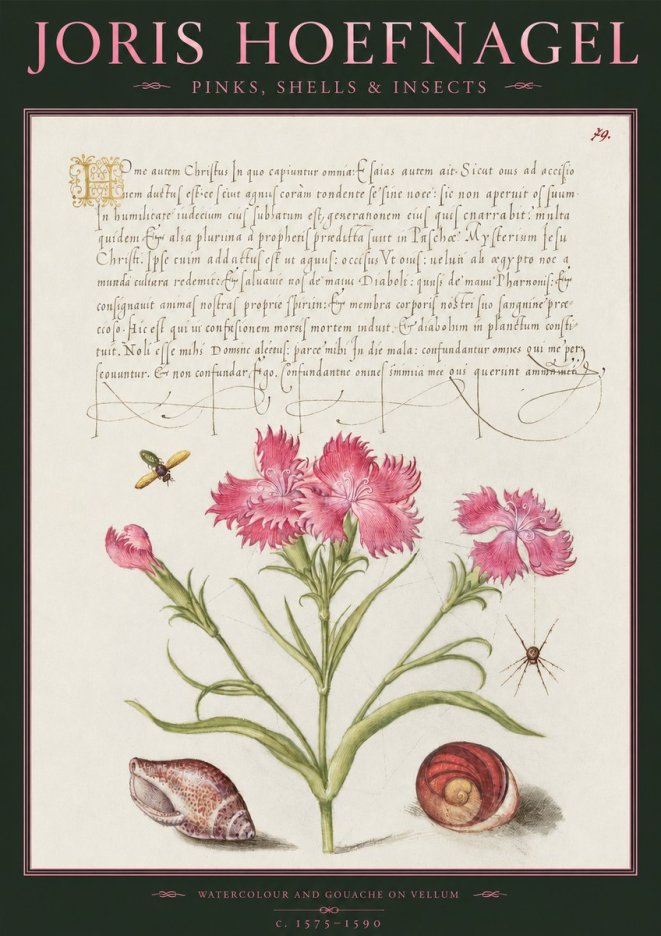 JORIS HOEFNAGEL
PINKS, SHELLS & INSECTS
79.
me autem Christus In quo capiuntur omnia: Esaias autem ait. Sicut ous ad occisio
nem ductus est: ce sicut agnus coràm tondente se sine noce: sic non aperuit os suum.
In humilitate iudecium eius sublatum est, generanonem eius quis cnarrabit: multa
quidem Et alia plurima à prophetis prædicta sunt in Paschæ Mysterium Jesu
Christi. Ipse enim adductus est ut agnus: occisus Vt ouis: ab ægypto nos a
mundi redemit: Et saluauit nos de manu Diaboli: quasi de manu Pharaonis: Et
consignauit animas nostras proprie spiritu: Et membra corporis nostri suo sanguine præ-
cioso. Hic est qui confusionem mortis mortem induit. Et diabolum in planctum consti-
tuit. Noli esse mihi Domine parce mihi In die mala: confundantur omnes qui me per
secuuntur. Et non confundar, Ego. Confundantur omnes mee qui querunt
WATERCOLOUR AND GOUACHE ON VELLUM
c. 1575–1590